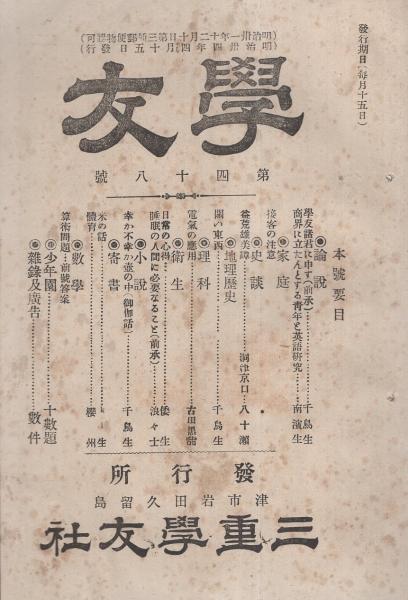 發行期日（每月十五日）
（明治卅一年十二月十日第三種郵便物認可）
（明治卅四年四月十五日發行）
學友
第四十八號
本號要目
◎論說
學友諸君に申す（前承）…千鳥生
商界に立たんとする靑年と英語硏究…南濱生
◎家庭
接客の注意
◎史談
益荒雄美譚…洞津京口 八十瀨
◎地理歷史
關い東西…千鳥生
◎理科
電氣の應用…古田黑翁
◎衞生
日常の心得…倭生
睡眠の人間に必要なること（前承）…浪々士
◎小說
幸か不幸か壺の中（御伽話）…千鳥生
◎寄書
米の話…生
體育…櫻州
◎數學
算術問題…前號答案
◎少年園…十數題
◎雜錄及廣告…數件
發行所
津市岩田久留島
三重學友社